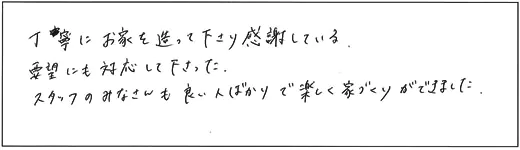 丁寧にお家を造って下さり感謝している.
要望にも対応して下さった.
スタッフのみなさんも良い人ばかりで楽しく家づくりができました.